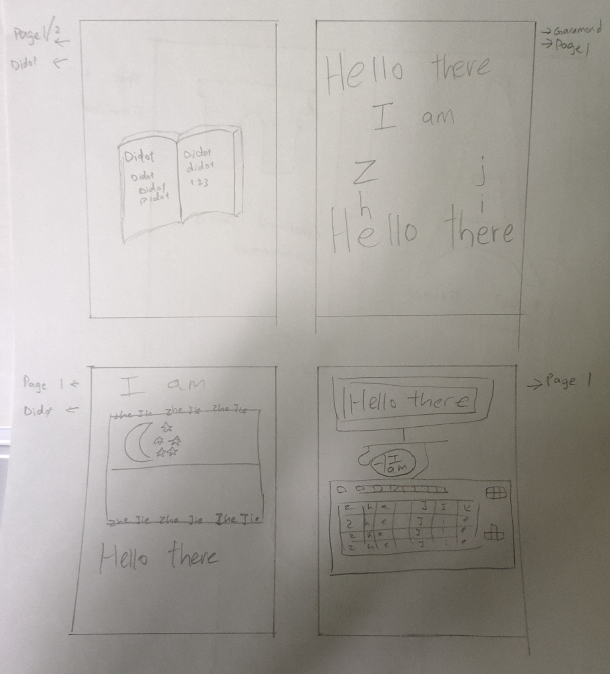 Page 1/2
Didot
Didot
Didot
Didot
Didot
Didot
didot
123
→ Garamond
→ Page 1
Hello there
I am
Z j
h i
Hello there
Page 1
Didot
I am
Zhe Jie Zhe Jie Zhe Jie
Zhe Jie Zhe Jie Zhe Jie
Hello there
→ Page 1
Hello there
I
am
z h e J I e
z h e J i e
z h e J i e
z h e J i e